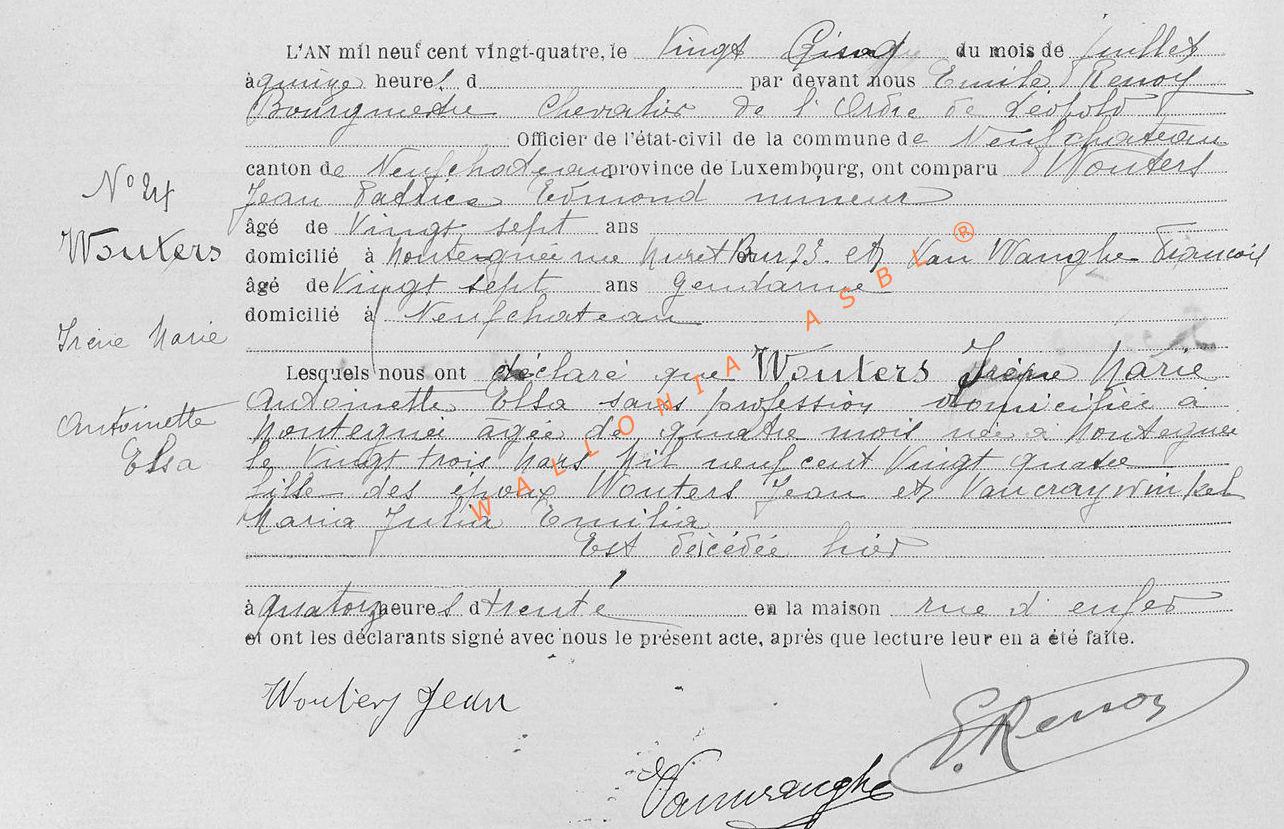 L'AN mil neuf cent vingt-quatre, le Vingt Cinq du mois de Juillet
à quinze heures d par devant nous Emile Renoy
Bourgmestre Chevalier de l'Ordre de Léopold
Officier de l'état-civil de la commune de Neufchateau
canton de Neufchateau province de Luxembourg, ont comparu Wouters
Jean Patrice Edmond mineur
âgé de Vingt sept ans
domicilié à Montegnée rue Muret 73. et Van Wanghe Francois
âgé de Vingt sept ans Gendarme
domicilié à Neufchateau
Lesquels nous ont déclaré que Wouters Irène Marie
Antoinette Elsa sans profession domiciliée à
Montegnée agée de quatre mois née à Montegnée
le Vingt trois Mars Mil neuf cent Vingt quatre
fille des époux Wouters Jean et Vancraywinkel
Maria Julia Emilia
Est décédée hier
à quatorze heures d trente en la maison rue d'enfer
et ont les déclarants signé avec nous le présent acte, après que lecture leur en a été faite.
N° 24
Wouters
Irène Marie
Antoinette
Elsa
Wouters Jean
E. Renoy
WALLONIA ASBL ®